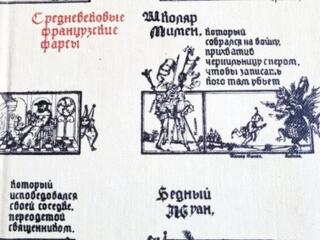 Средневековые
французские
фарсы
Школяр
Мимен,
который
собрался на войну,
прихватив
чернильницу с пером,
чтобы записать
кого там убьет
который
исповедовался
своей соседке,
переодетой
священником.
Бедный
Жуан,